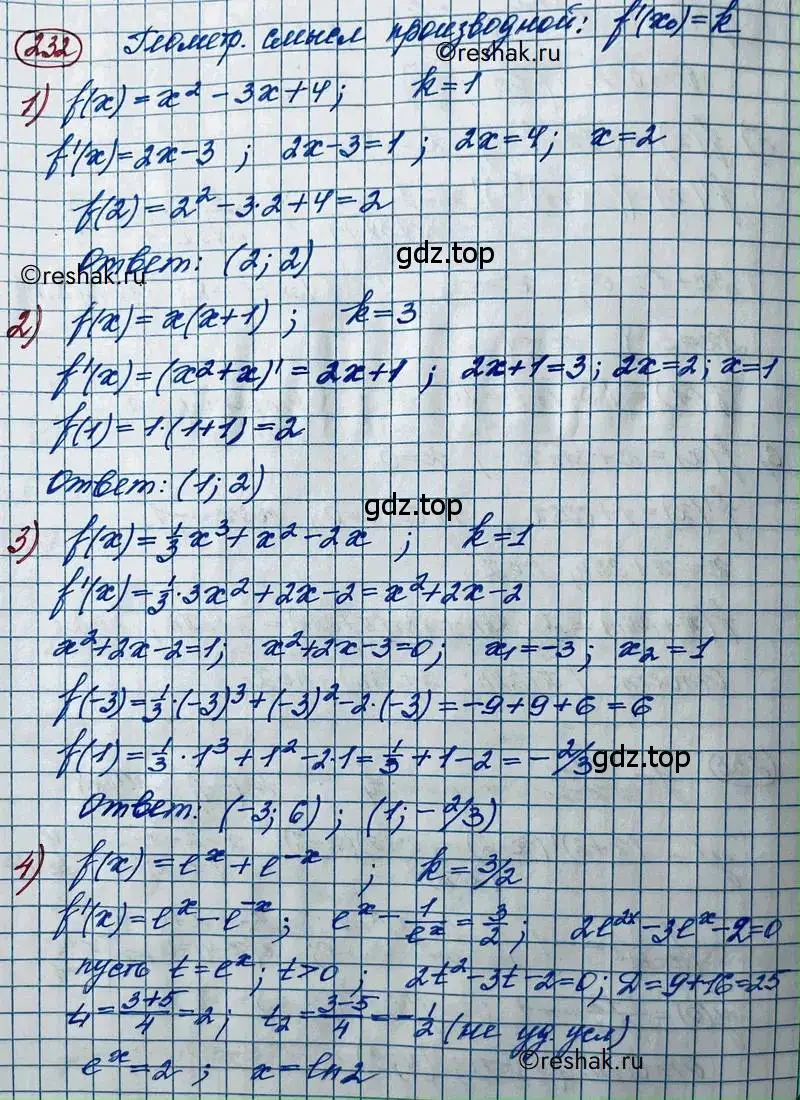 232 Геометр. смысл производной: f'(x₀) = k
©reshak.ru
1) f(x) = x² - 3x + 4; k = 1
f'(x) = 2x - 3 ; 2x - 3 = 1 ; 2x = 4; x = 2
f(2) = 2² - 3·2 + 4 = 2
Ответ: (2; 2)
gdz.top
©reshak.ru
2) f(x) = x(x+1) ; k = 3
f'(x) = (x² + x)' = 2x + 1 ; 2x + 1 = 3; 2x = 2; x = 1
f(1) = 1·(1+1) = 2
Ответ: (1; 2)
gdz.top
3) f(x) = 1/3 x³ + x² - 2x ; k = 1
f'(x) = 1/3 · 3x² + 2x - 2 = x² + 2x - 2
x² + 2x - 2 = 1; x² + 2x - 3 = 0; x₁ = -3; x₂ = 1
f(-3) = 1/3 · (-3)³ + (-3)² - 2·(-3) = -9 + 9 + 6 = 6
f(1) = 1/3 · 1³ + 1² - 2·1 = 1/3 + 1 - 2 = -2/3
gdz.top
Ответ: (-3; 6) ; (1; -2/3)
4) f(x) = eˣ + e⁻ˣ ; k = 3/2
f'(x) = eˣ - e⁻ˣ ; eˣ - 1/eˣ = 3/2 ; 2e²ˣ - 3eˣ - 2 = 0
пусть t = eˣ; t > 0 ; 2t² - 3t - 2 = 0; D = 9 + 16 = 25
t₁ = (3+5)/4 = 2; t₂ = (3-5)/4 = -1/2 (не уд. усл)
eˣ = 2 ; x = ln2
©reshak.ru